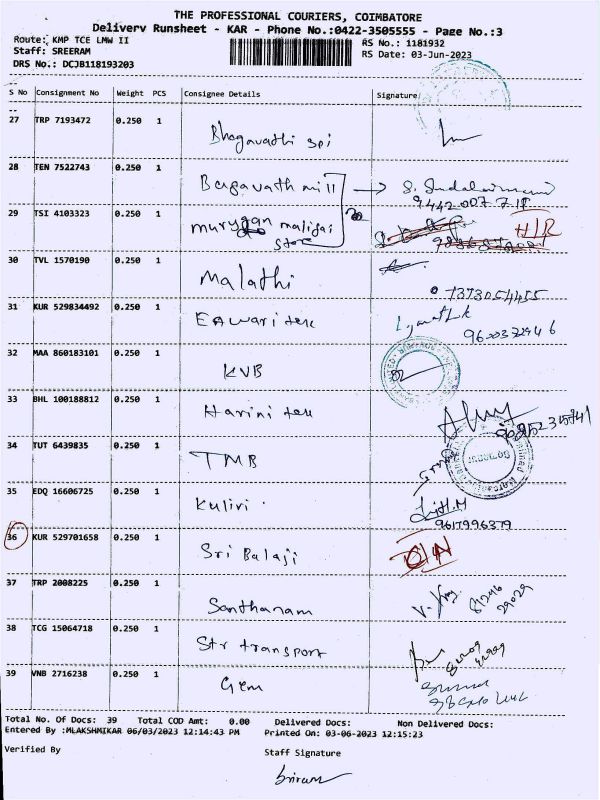 THE PROFESSIONAL COURIERS, COIMBATORE
Delivery Runsheet - KAR - Phone No.:0422-3505555 - Page No.:3
Route: KMP TCE LMW II
RS No.: 1181932
Staff: SREERAM
RS Date: 03-Jun-2023
DRS No.: DCJB118193203
S No Consignment No Weight PCS Consignee Details Signature
27 TRP 7193472 0.250 1 Bhagavathi spi
28 TEN 7522743 0.250 1 Bagavath mill
29 TSI 4103323 0.250 1 murugan maligai store H/R
30 TVL 1570190 0.250 1 Malathi
7373054455
31 KUR 529834492 0.250 1 Eawari tex
9600372946
32 MAA 860183101 0.250 1 KVB
33 BHL 100188812 0.250 1 Harini tex
34 TUT 6439835 0.250 1 TMB
35 EDQ 16606725 0.250 1 Kuliri
9617996379
36 KUR 529701658 0.250 1 Sri Balaji
37 TRP 2008225 0.250 1 Santhanam
38 TCG 15064718 0.250 1 Str transport
39 VNB 2716238 0.250 1 Gem
Total No. Of Docs: 39 Total COD Amt: 0.00 Delivered Docs: Non Delivered Docs:
Entered By :MLAKSHMIKAR 06/03/2023 12:14:43 PM Printed On: 03-06-2023 12:15:23
Verified By Staff Signature
Sriram